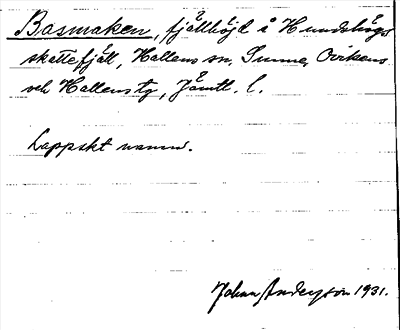 Basmaken, fjällhöjd å Hundshögs
skattefjäll, Hallens sn, Sunne, Ovikens
och Hallens tg, Jämtl. l.
Lappskt namn.
Johan Anderzson 1931.